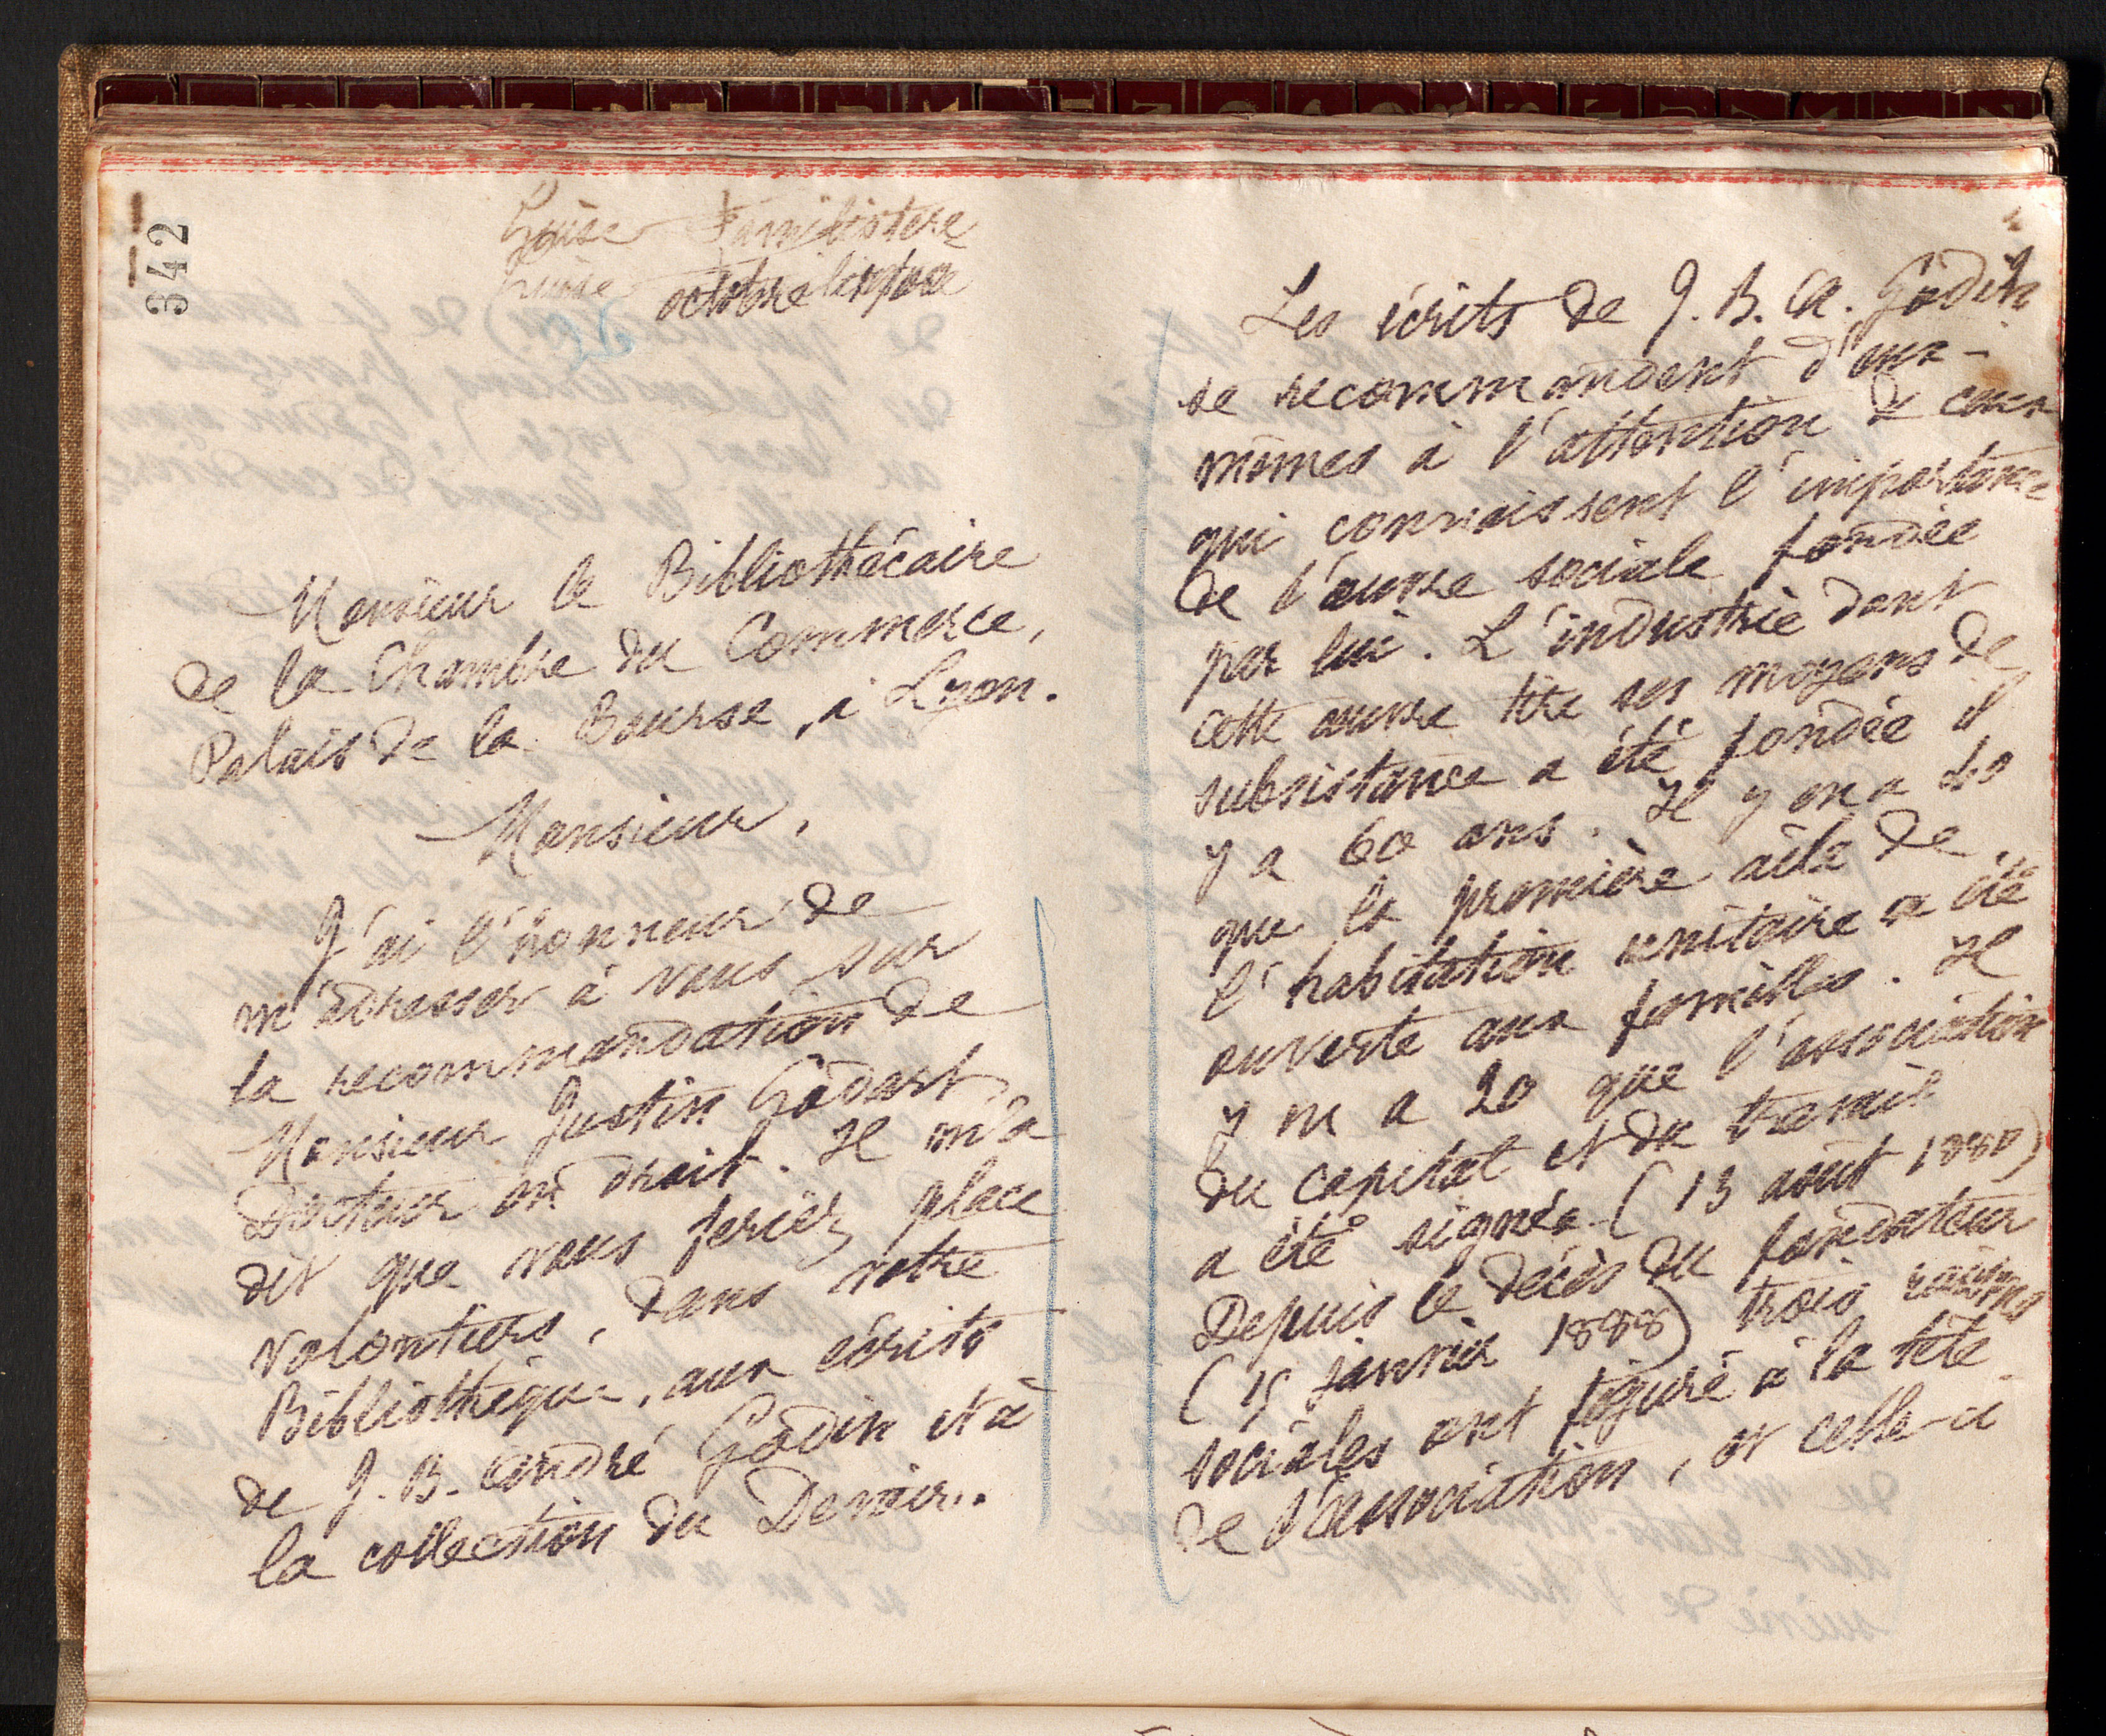 342
Guise Familistère
Guise octobre
26
Monsieur le Bibliothécaire
de la Chambre du Commerce,
Palais de la Bourse, à Lyon.
Monsieur,
J'ai l'honneur de
m'adresser à vous sur
la recommandation de
Monsieur Justin Godart
Docteur en droit. Il m'a
dit que vous feriez place
volontiers, dans votre
Bibliothèque, aux écrits
de J. B. André Godin et à
la collection du Devoir.
Les écrits de J. B. A. Godin
se recommandent d'eux-
mêmes à l'attention de ceux
qui connaissent l'importance
de l'œuvre sociale fondée
par lui. L'industrie dont
cette œuvre tire ses moyens de
subsistance a été fondée il
y a 60 ans. Il y en a 40
que la première aile de
l'habitation unitaire a été
ouverte aux familles. Il
y en a 20 que l'association
du capital et du travail
a été signée (13 août 1880)
Depuis le décès du fondateur
(15 janvier 1888) trois raisons
sociales ont figuré à la tête
de l'association, et celle-ci